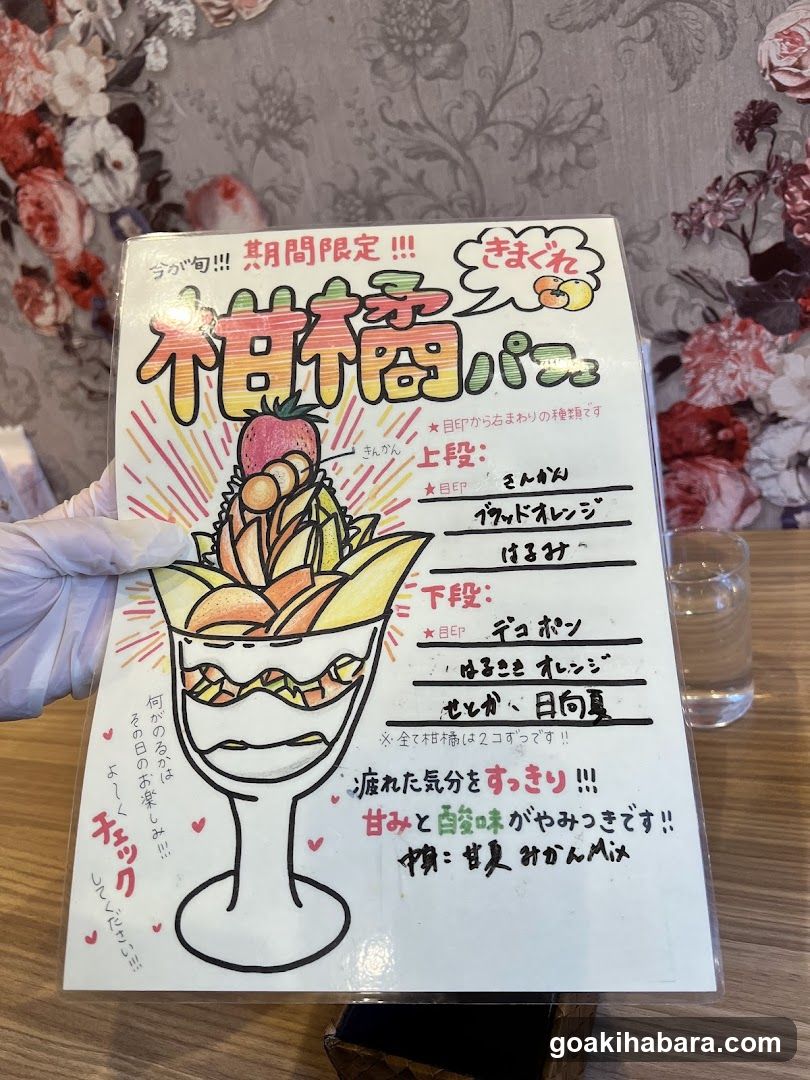 今が旬!!! 期間限定!!!
きまぐれ
柑橘パフェ
★目印から右まわりの種類です
きんかん
上段:
★目印 きんかん
ブラッドオレンジ
はるみ
下段:
★目印 デコポン
はるきき オレンジ
せとか、日向夏
※全て柑橘は2コずつです!!
何がのるかは
その日のお楽しみ!!!
よ〜く
チェック
してください!!!
疲れた気分をすっきり!!!
甘みと酸味がやみつきです!!
中身:甘夏 みかんMix
goakihabara.com